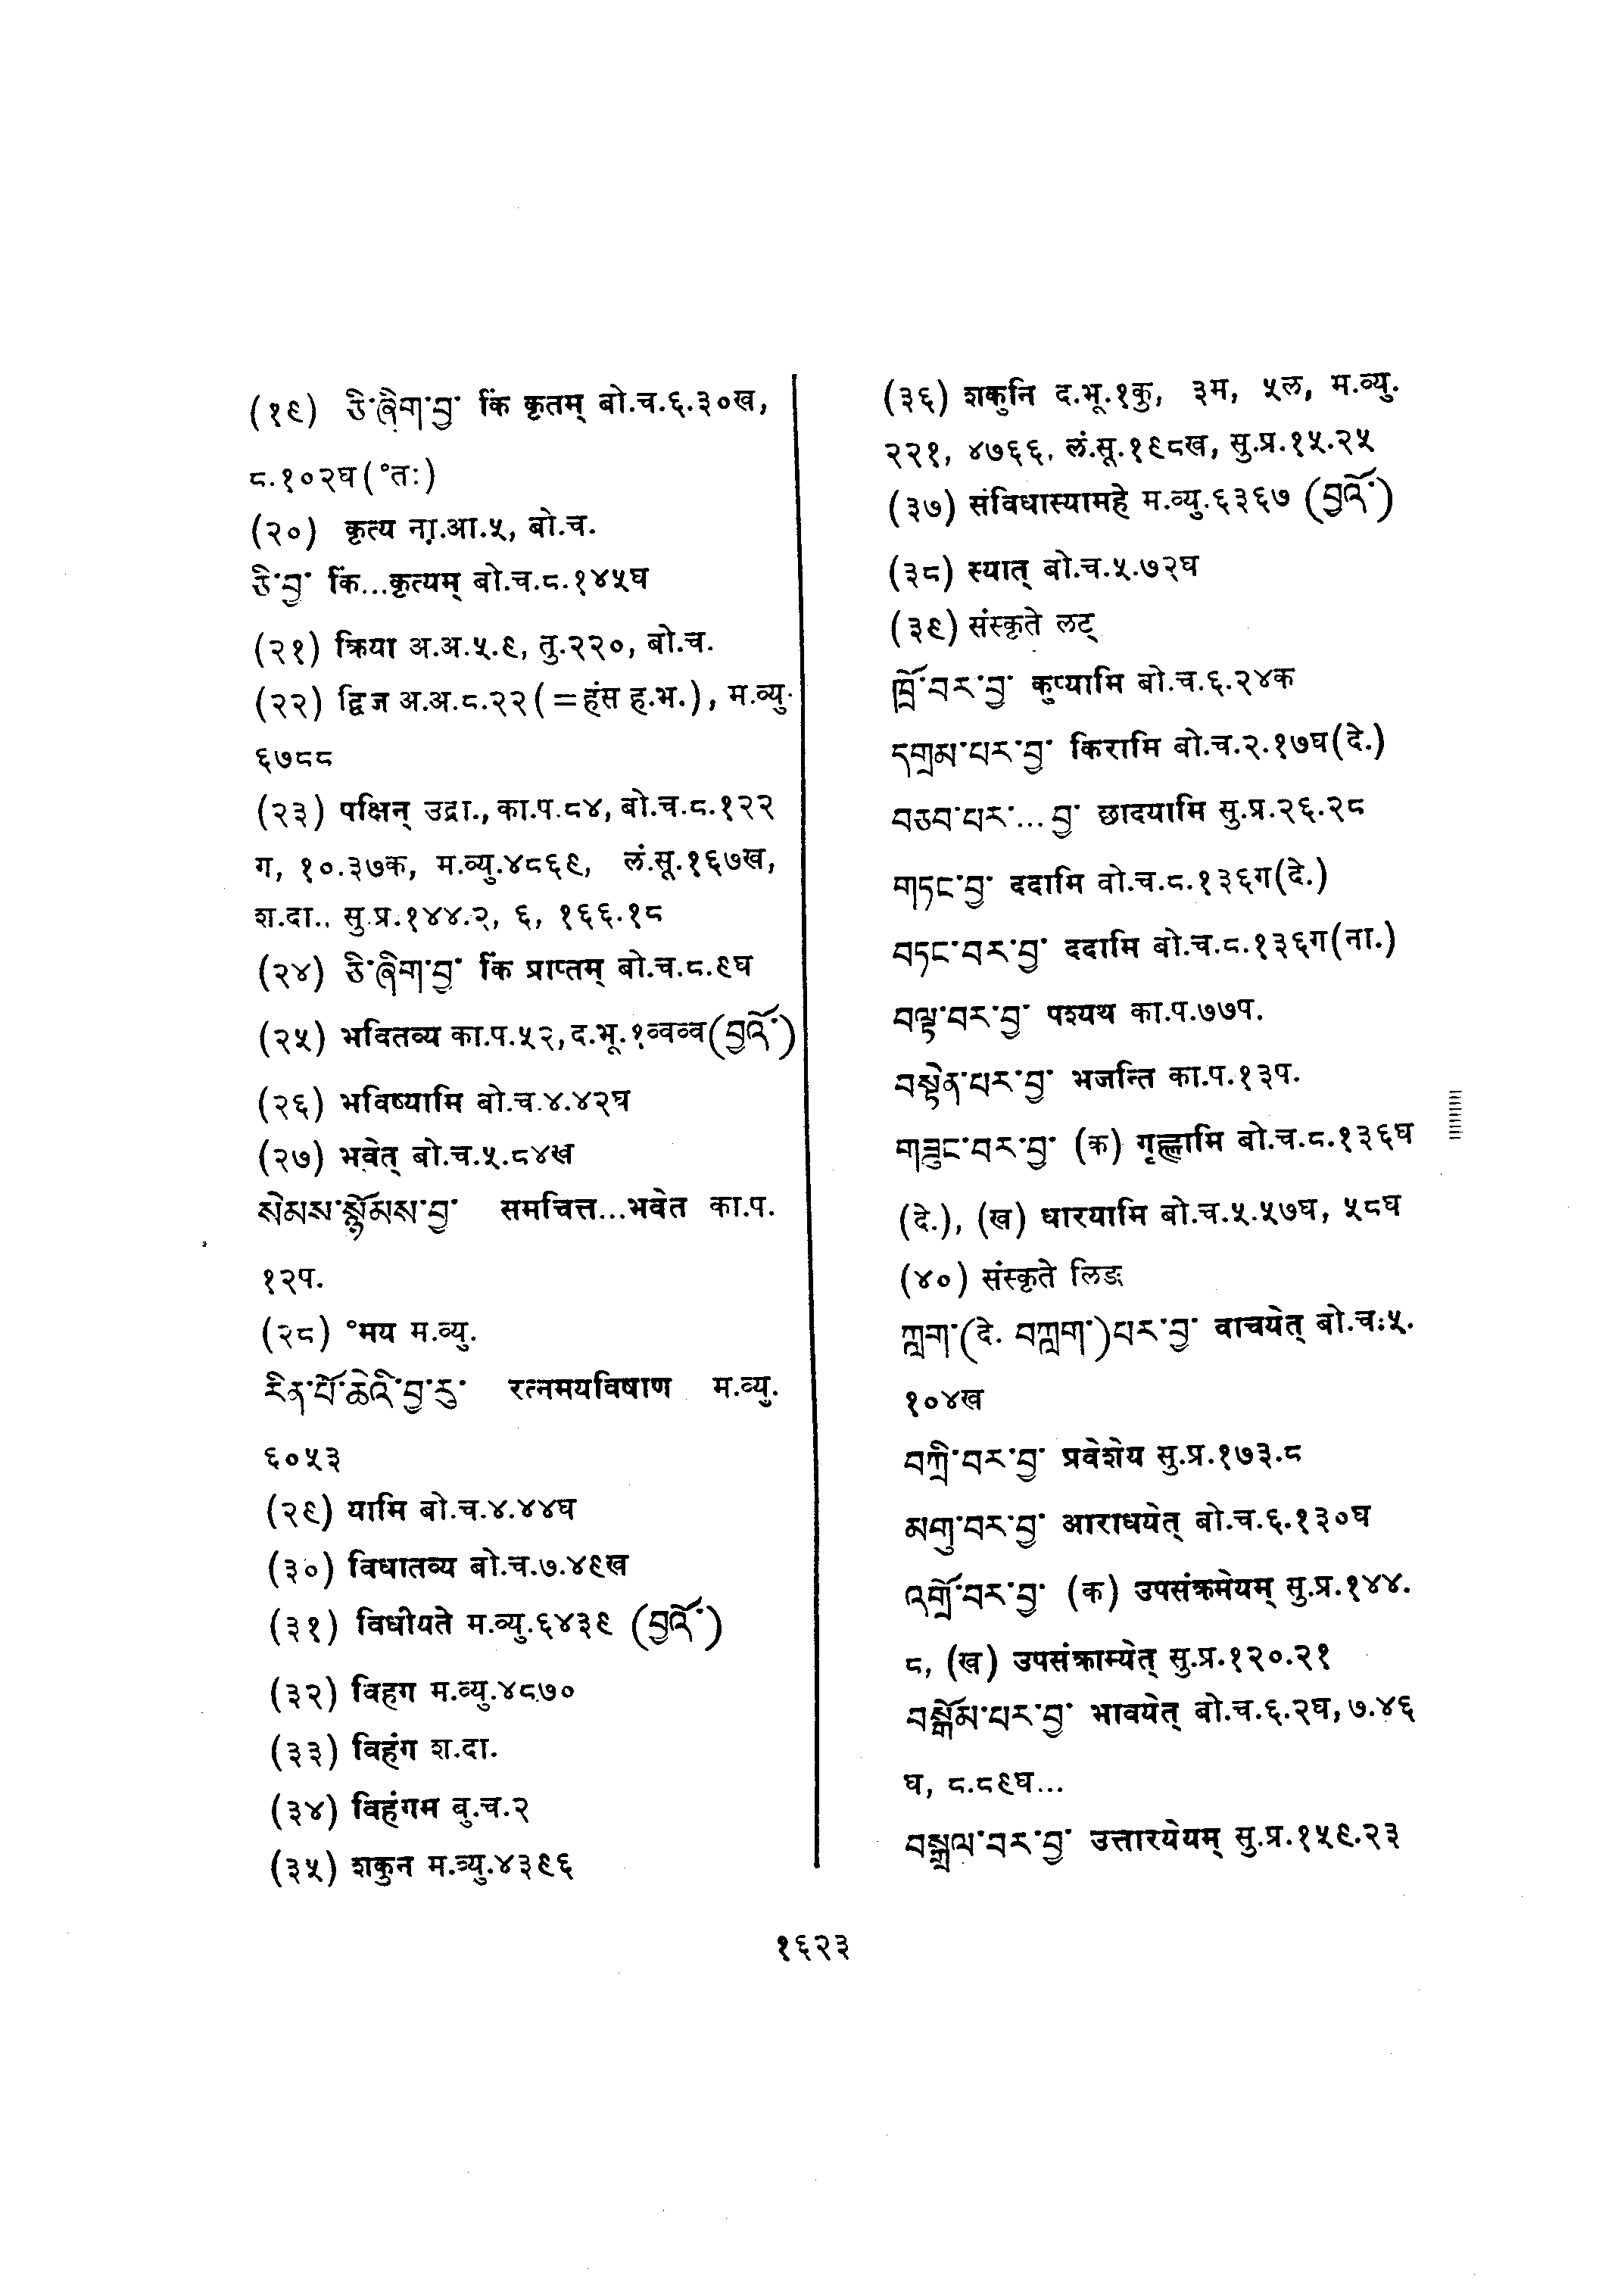 (१९) ཅི་ཞིག་བྱ་ किं कृतम् बो.च.६.३०ख,
८.१०२घ(°तः)
(२०) कृत्य ना.आ.५, बो.च.
ཅི་བྱ་ किं...कृत्यम् बो.च.८.१४५घ
(२१) क्रिया अ.अ.५.९, तु.२२०, बो.च.
(२२) द्विज अ.अ.८.२२(=हंस ह.भ.), म.व्यु.
६७८८
(२३) पक्षिन् उद्रा., का.प.८४, बो.च.८.१२२
ग, १०.३७क, म.व्यु.४८६९, लं.सू.१६७ख,
श.दा., सु.प्र.१४४.२, ६, १६६.१८
(२४) ཅི་ཞིག་བྱ་ किं प्राप्तम् बो.च.८.९घ
(२५) भवितव्य का.प.५२, द.भू.१व्वव्व(བྱའོ་)
(२६) भविष्यामि बो.च.४.४२घ
(२७) भवेत् बो.च.५.८४ख
སེམས་སྙོམས་བྱ་ समचित्त...भवेत का.प.
१२प.
(२८) °मय म.व्यु.
རིན་པོ་ཆེའི་བྱ་རུ་ रत्नमयविषाण म.व्यु.
६०५३
(२९) यामि बो.च.४.४४घ
(३०) विधातव्य बो.च.७.४९ख
(३१) विधीयते म.व्यु.६४३९ (བྱའོ་)
(३२) विहग म.व्यु.४८७०
(३३) विहंग श.दा.
(३४) विहंगम बु.च.२
(३५) शकुन म.व्यु.४३९६
(३६) शकुनि द.भू.१कु, ३म, ५ल, म.व्यु.
२२१, ४७६६, लं.सू.१९८ख, सु.प्र.१५.२५
(३७) संविधास्यामहे म.व्यु.६३६७ (བྱའོ་)
(३८) स्यात् बो.च.५.७२घ
(३९) संस्कृते लट्
ཁྲོ་བར་བྱ་ कुप्यामि बो.च.६.२४क
དགྲམ་པར་བྱ་ किरामि बो.च.२.१७घ(दे.)
བཅབ་པར་... བྱ་ छादयामि सु.प्र.२६.२८
གཏང་བྱ་ ददामि बो.च.८.१३६ग(दे.)
བཏང་བར་བྱ་ ददामि बो.च.८.१३६ग(ना.)
བལྟ་བར་བྱ་ पश्यथ का.प.७७प.
བསྟེན་པར་བྱ་ भजन्ति का.प.१३प.
གཟུང་བར་བྱ་ (क) गृह्णामि बो.च.८.१३६घ
(दे.), (ख) धारयामि बो.च.५.५७घ, ५८घ
(४०) संस्कृते लिङ
ཀླག་(दे. བཀླག་)པར་བྱ་ वाचयेत् बो.च.५.
१०४ख
བཀྲི་བར་བྱ་ प्रवेशेय सु.प्र.१७३.८
མགུ་བར་བྱ་ आराधयेत् बो.च.६.१३०घ
འགྲོ་བར་བྱ་ (क) उपसंक्रमेयम् सु.प्र.१४४.
८, (ख) उपसंक्राम्येत् सु.प्र.१२०.२१
བསྒོམ་པར་བྱ་ भावयेत् बो.च.६.२घ, ७.४६
घ, ८.८९घ...
བསྒྲལ་བར་བྱ་ उत्तारयेयम् सु.प्र.१५९.२३
१६२३